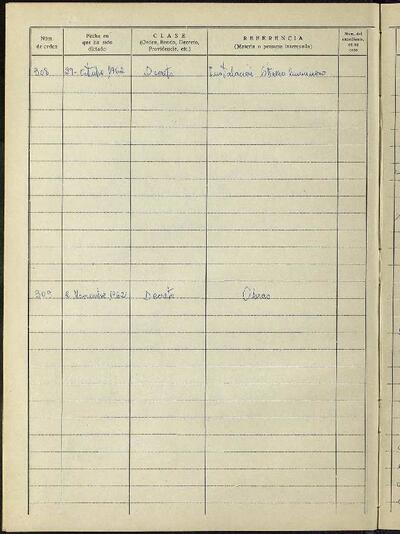 Núm. de orden
Fecha en que ha sido dictado
CLASE
(Orden, Bando, Decreto, Providencia, etc.)
REFERENCIA
(Materia o persona interesada)
Núm. del
308 29 - octubre 1962 Decreto Instalación letrero luminoso
309 8 Noviembre 1962 Decreto Obras